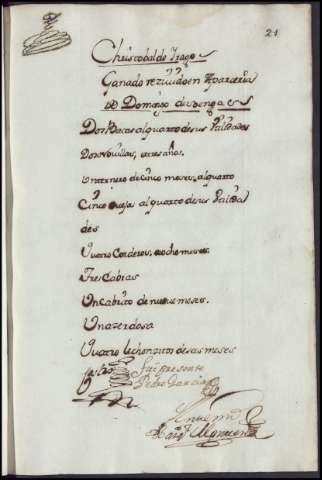 21
Christobal de Trago
Ganado rezivido en Aparzeria
de Domingo de
Dos Bacas al quarto de sus Utilidades
Dos Novillas, a tres años.
Un ternero de cinco meses, al quarto
Cinco ovejas al quarto de sus Utilida
des
Quatro Corderos, a ocho meses.
Tres Cabras
Un Cabrito de nueve meses.
Una zerdosa
Quatro lechonzitos de seis meses
Fui presente
Pedro Garcia
Ante mi